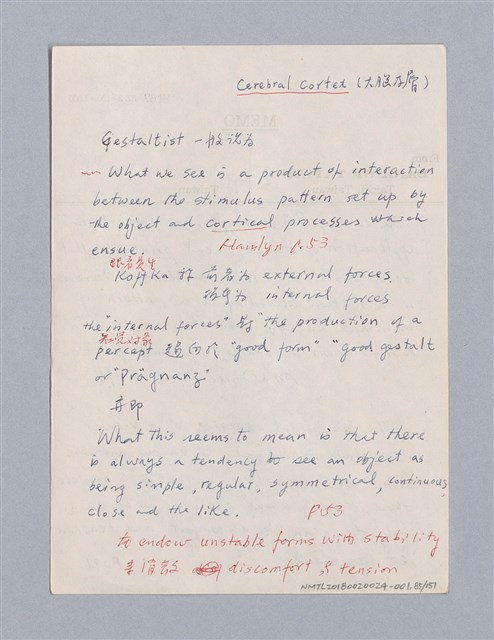 Cerebral Cortex (大腦皮層)
Gestaltist 一般認為
What we see is a product of interaction
between the stimulus pattern set up by
the object and cortical processes which
ensue. Hamlyn p.53
跟著發生
Koffka 称 前者為 external forces.
後者為 internal forces
the "internal forces" 對 "the production of a
知覺對象
percept 趨向於 "good form" "good gestalt
or "Prägnanz"
亦即
"What this seems to mean is that there
is always a tendency to see an object as
being simple, regular, symmetrical, continuous,
close and the like. p.53
to endow unstable forms with stability
discomfort & tension
NMTL20180020024-001.85/151